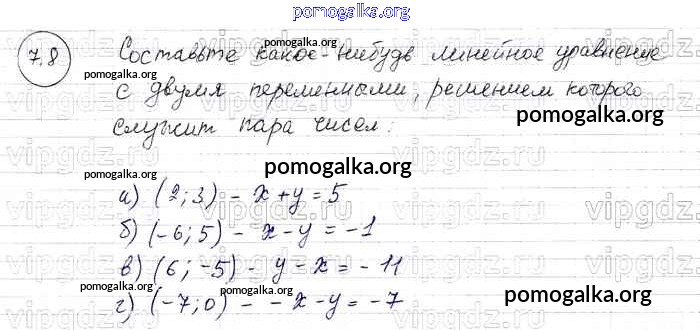 pomogalka.org
7.8 Составьте какое-нибудь линейное уравнение
pomogalka.org pomogalka.org
с двумя переменными, решением которого
служит пара чисел:
pomogalka.org
vipgdz.ru vipgdz.ru vipgdz.ru
pomogalka.org
а) (2; 3) - x + y = 5
б) (-6; 5) - x - y = -1
в) (6; -5) - y - x = - 11
pomogalka.org pomogalka.org
г) (-7; 0) - - x - y = -7